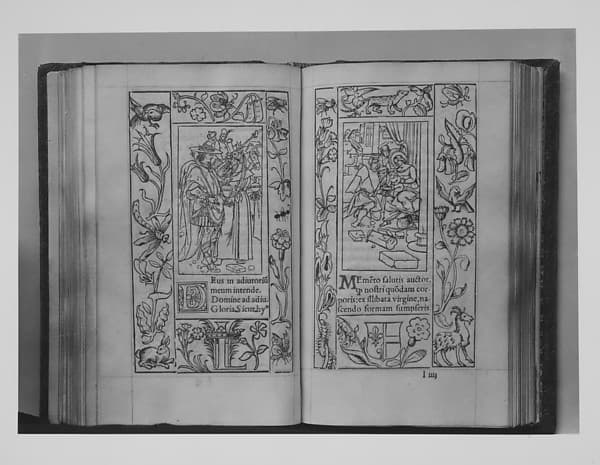 Eus in adiutoriũ
meum intende.
Domine ad adiu.
Gloria. Sicut. hy
MEmẽto salutis auctor,
ꝙ nostri quõdam cor-
poris: ex illibata virgine, na-
scendo formam sumpseris.